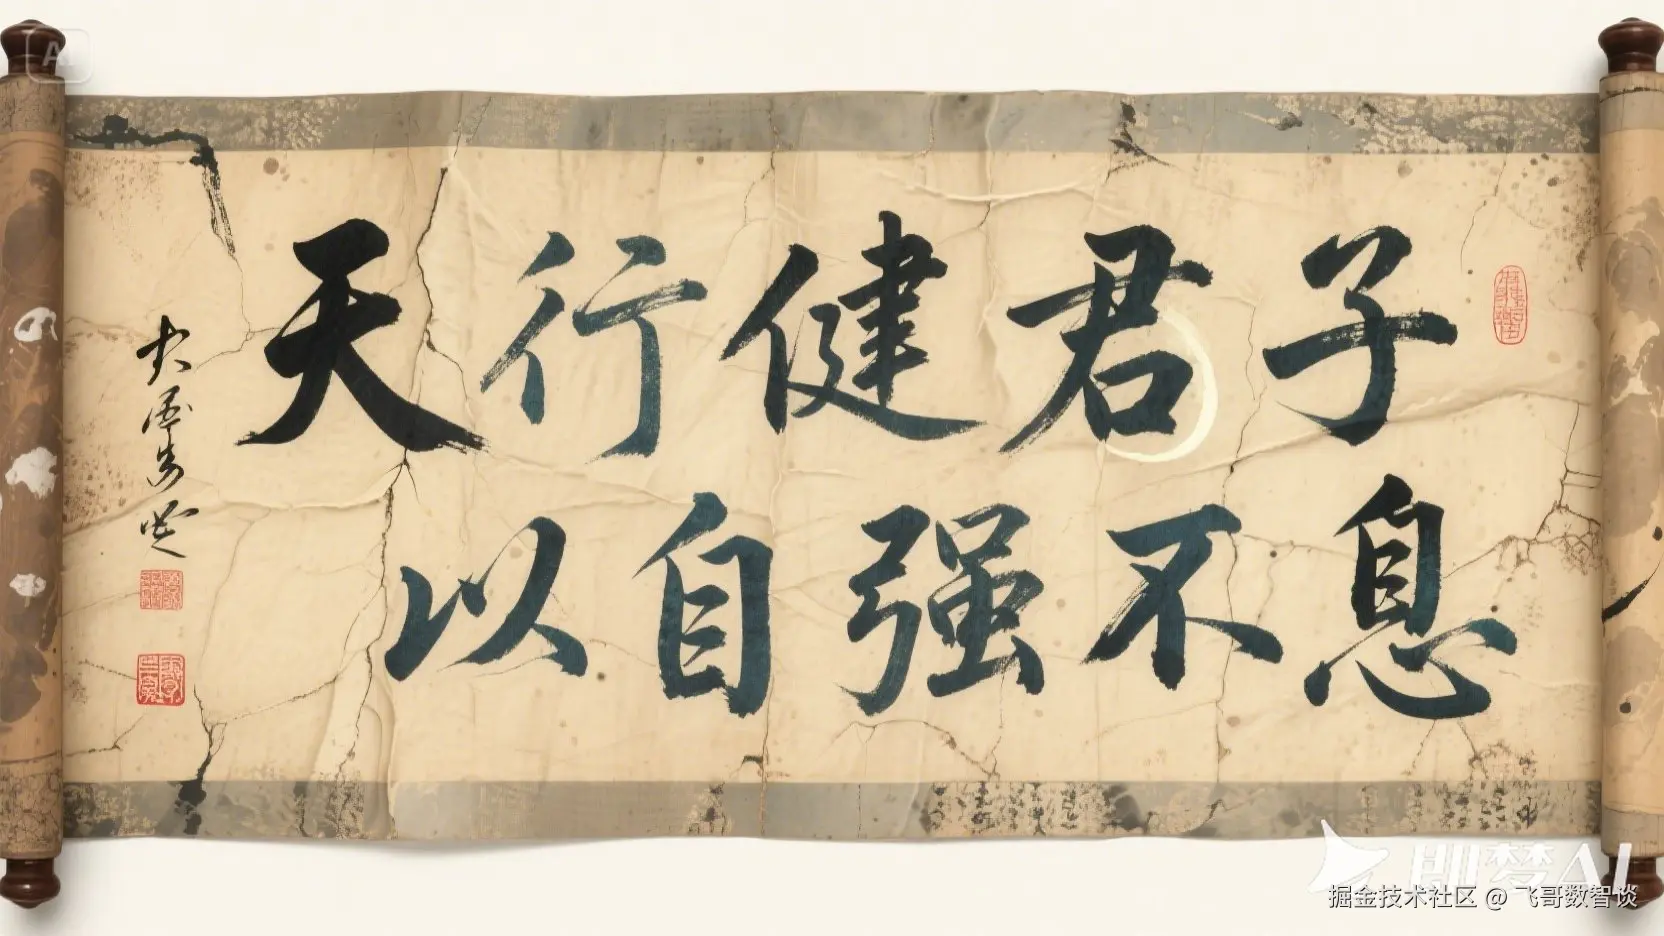 天行健君子
以自强不息
AI
即梦AI
掘金技术社区 @ 飞哥数智谈